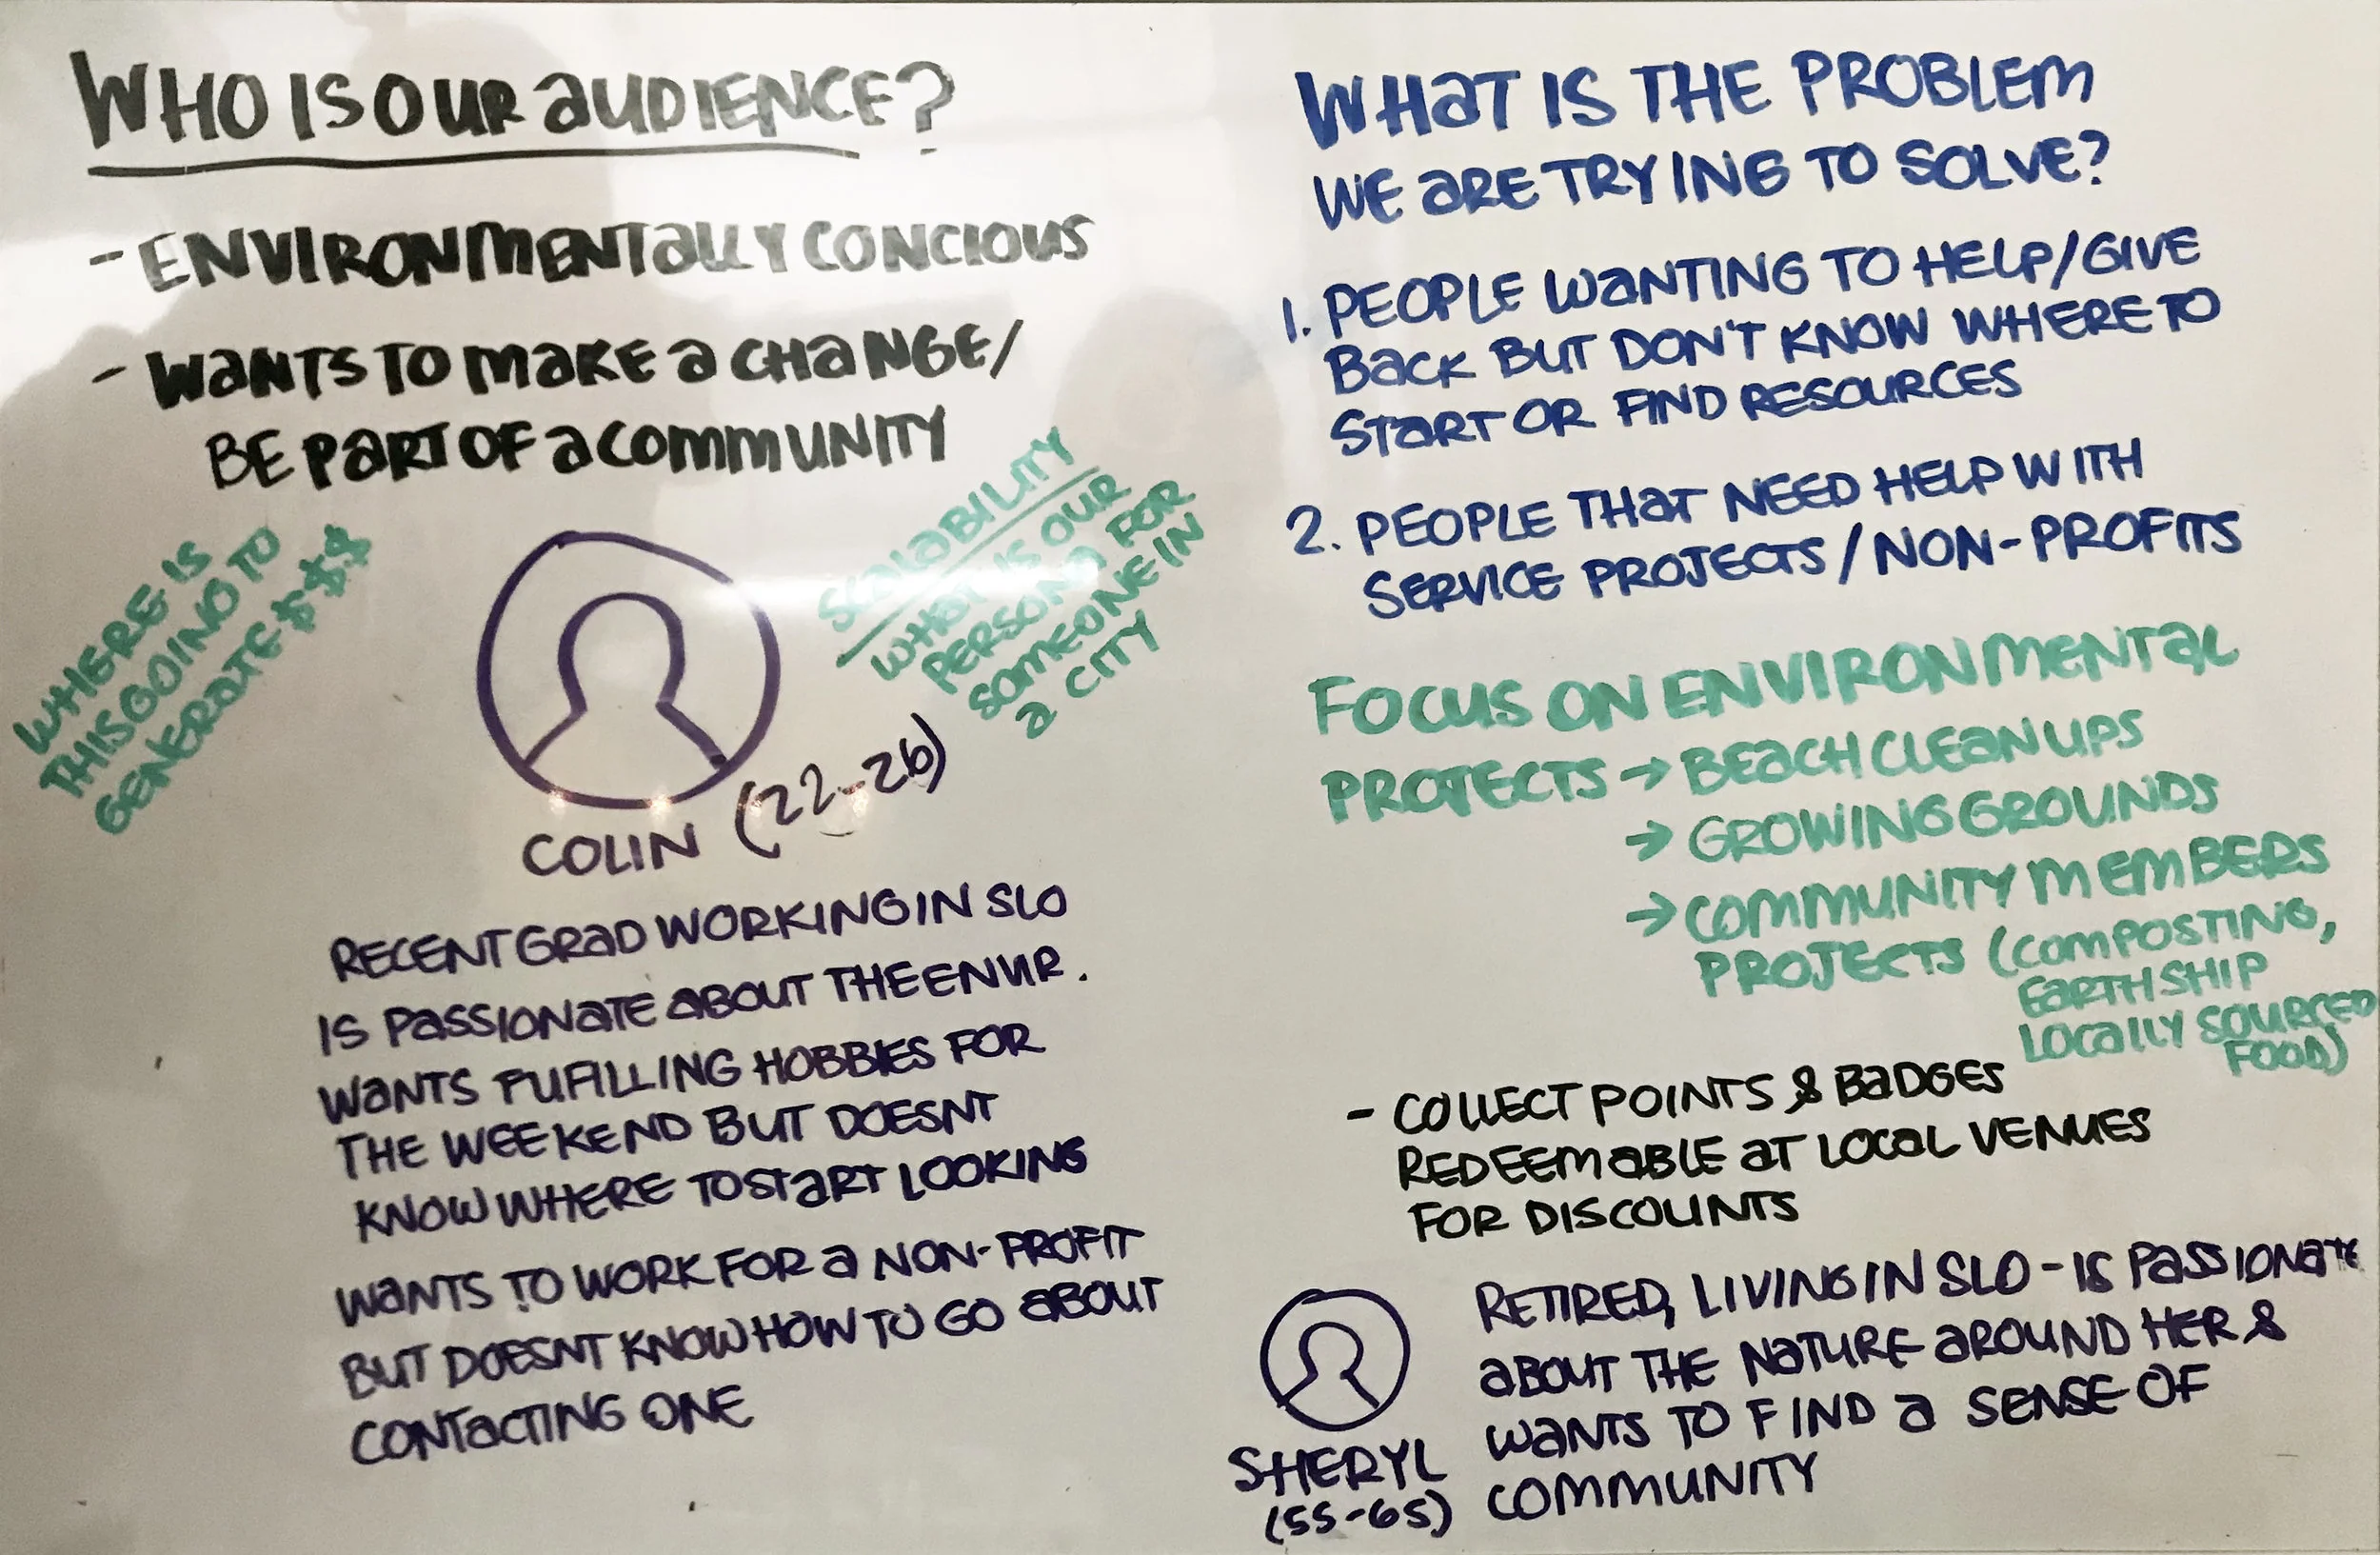 WHO IS OUR AUDIENCE?
- ENVIRONMENTALLY CONCIOUS
- WANTS TO MAKE A CHANGE/
BE PART OF A COMMUNITY
WHERE IS
THIS GOING TO
GENERATE $$$
SCALABILITY
WHAT IS OUR
PERSONA FOR
SOMEONE IN
A CITY
COLIN (22-26)
RECENT GRAD WORKING IN SLO
IS PASSIONATE ABOUT THE ENVIR.
WANTS FUFILLING HOBBIES FOR
THE WEEKEND BUT DOESNT
KNOW WHERE TO START LOOKING
WANTS TO WORK FOR A NON-PROFIT
BUT DOESNT KNOW HOW TO GO ABOUT
CONTACTING ONE
WHAT IS THE PROBLEM
WE ARE TRYING TO SOLVE?
1. PEOPLE WANTING TO HELP/GIVE
BACK BUT DON'T KNOW WHERE TO
START OR FIND RESOURCES
2. PEOPLE THAT NEED HELP WITH
SERVICE PROJECTS/NON-PROFITS
FOCUS ON ENVIRONMENTAL
PROJECTS → BEACH CLEANUPS
→ GROWING GROUNDS
→ COMMUNITY MEMBERS
PROJECTS (COMPOSTING,
EARTHSHIP
LOCALLY SOURCED
FOOD)
- COLLECT POINTS & BADGES
REDEEMABLE AT LOCAL VENUES
FOR DISCOUNTS
SHERYL
(55-65)
RETIRED, LIVING IN SLO - IS PASSIONATE
ABOUT THE NATURE AROUND HER &
WANTS TO FIND A SENSE OF
COMMUNITY